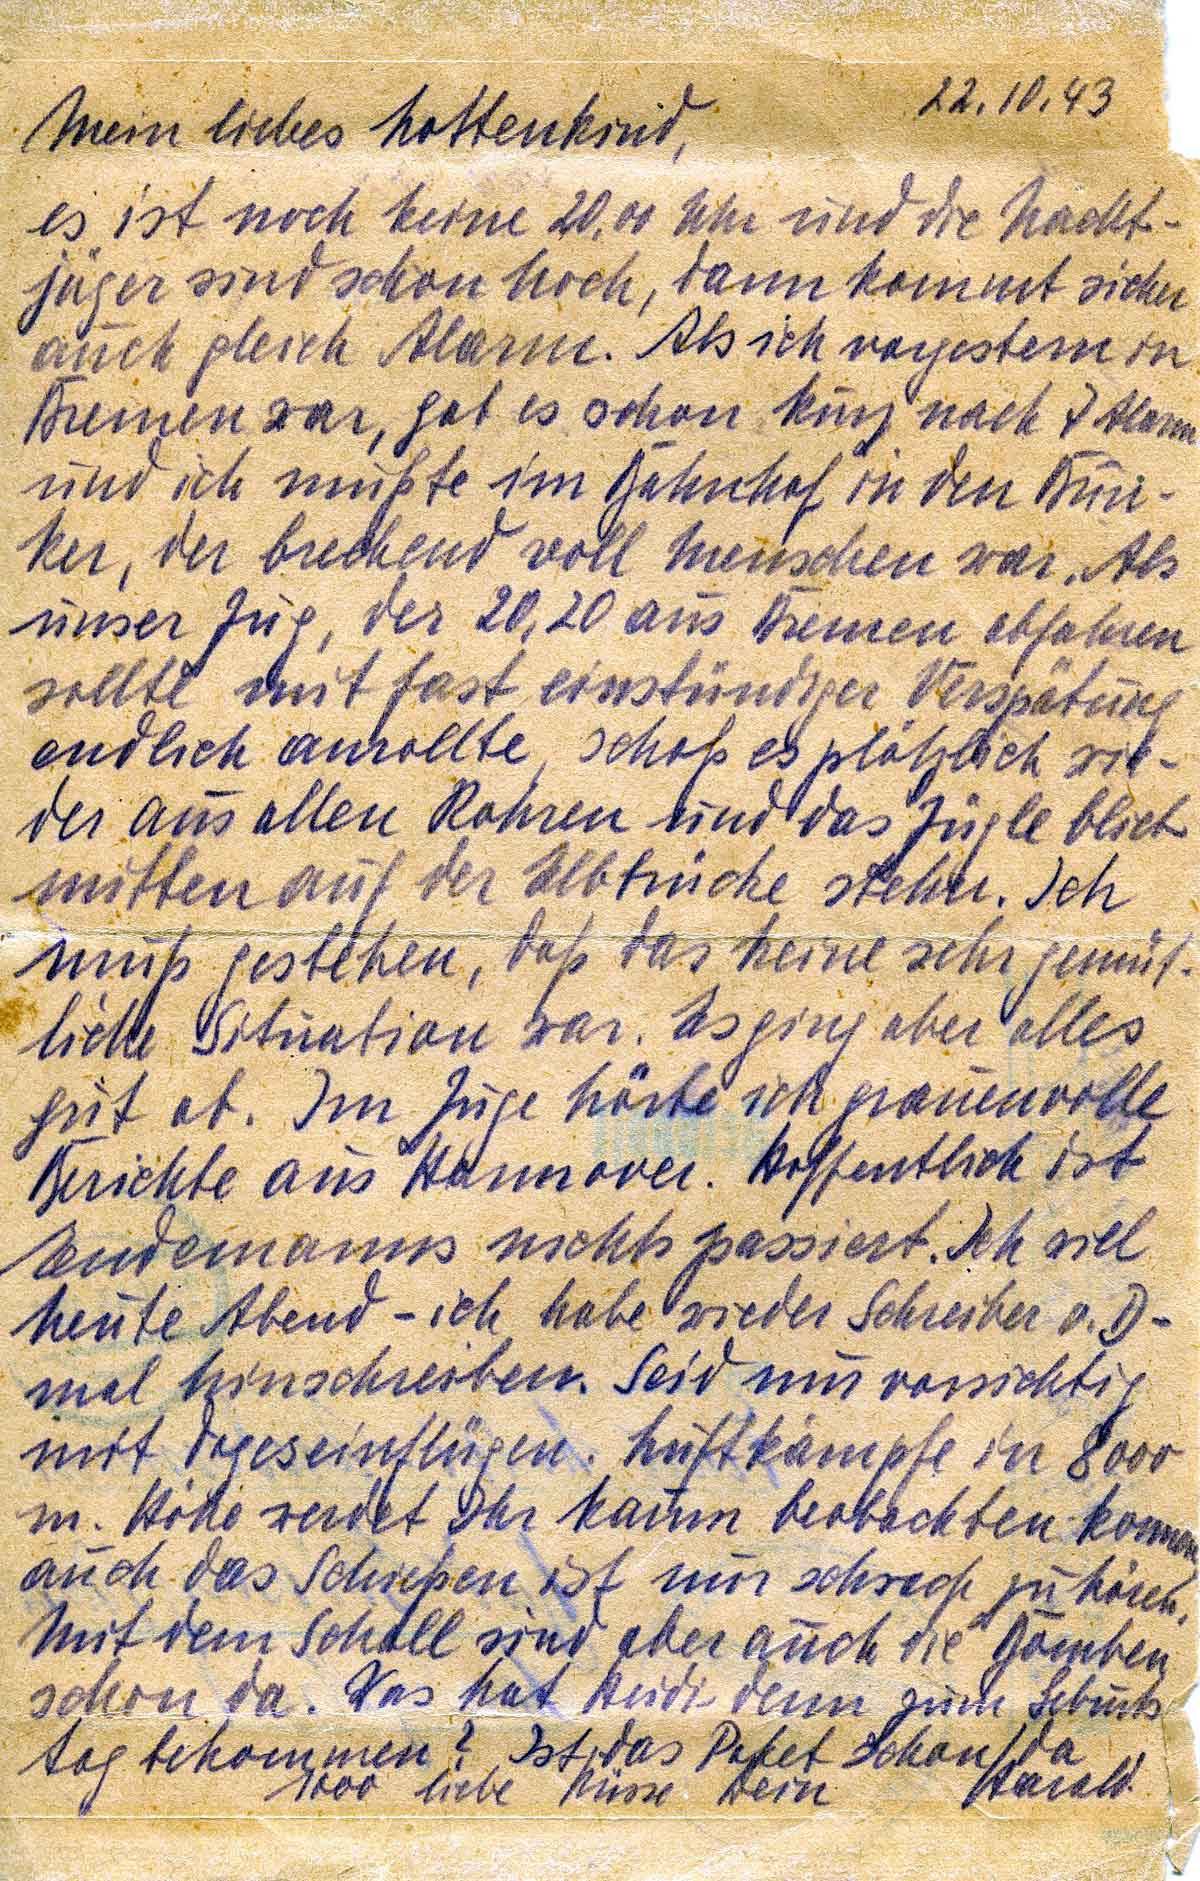 22.10.43
Mein liebes Mottenkind,
es ist noch keine 20.00 Uhr und die Nacht-
jäger sind schon hoch, dann kommt sicher
auch gleich Alarm. Als ich vorgestern in
Bremen war, gab es schon kurz nach 7 Alarm
und ich mußte im Bahnhof in den Bun-
ker, der brechend voll Menschen war. Als
unser Zug, der 20,20 aus Bremen abfahren
sollte mit fast einstündiger Verspätung
endlich anrollte, schoß es plötzlich wie-
der aus allen Rohren und das Zügle blieb
mitten auf der Elbbrücke stehn. Ich
muß gestehen, daß das keine sehr gemüt-
liche Situation war. Es ging aber alles
gut ab. Im Zuge hörte ich grauenvolle
Berichte aus Hannover. Hoffentlich ist
Endemanns nichts passiert. Ich will
heute Abend - ich habe wieder Schreiber v. D -
mal hinschreiben. Seid nur vorsichtig
mit Tageseinflügen. Luftkämpfe in 8000
m. Höhe werdet Ihr kaum beobachten können
auch das Schießen ist nur schwach zu hören.
Mit dem Schall sind aber auch die Bomben
schon da. Was hat Heidi denn zum Geburts
tag bekommen? Ist das Paket schon da
1000 liebe Küsse Dein Harald.